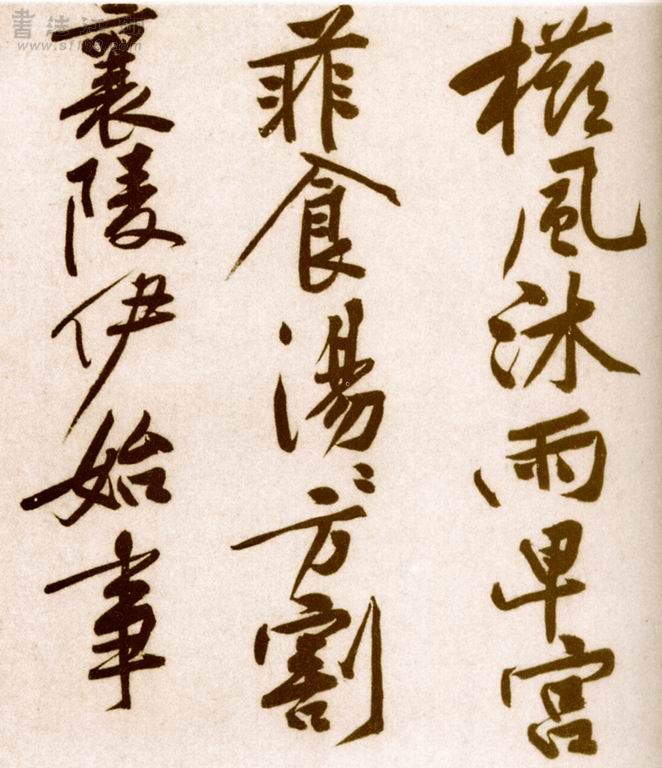 櫛風沐雨卑宮
菲食湯〻方割
襄陵伊始事
書法江湖